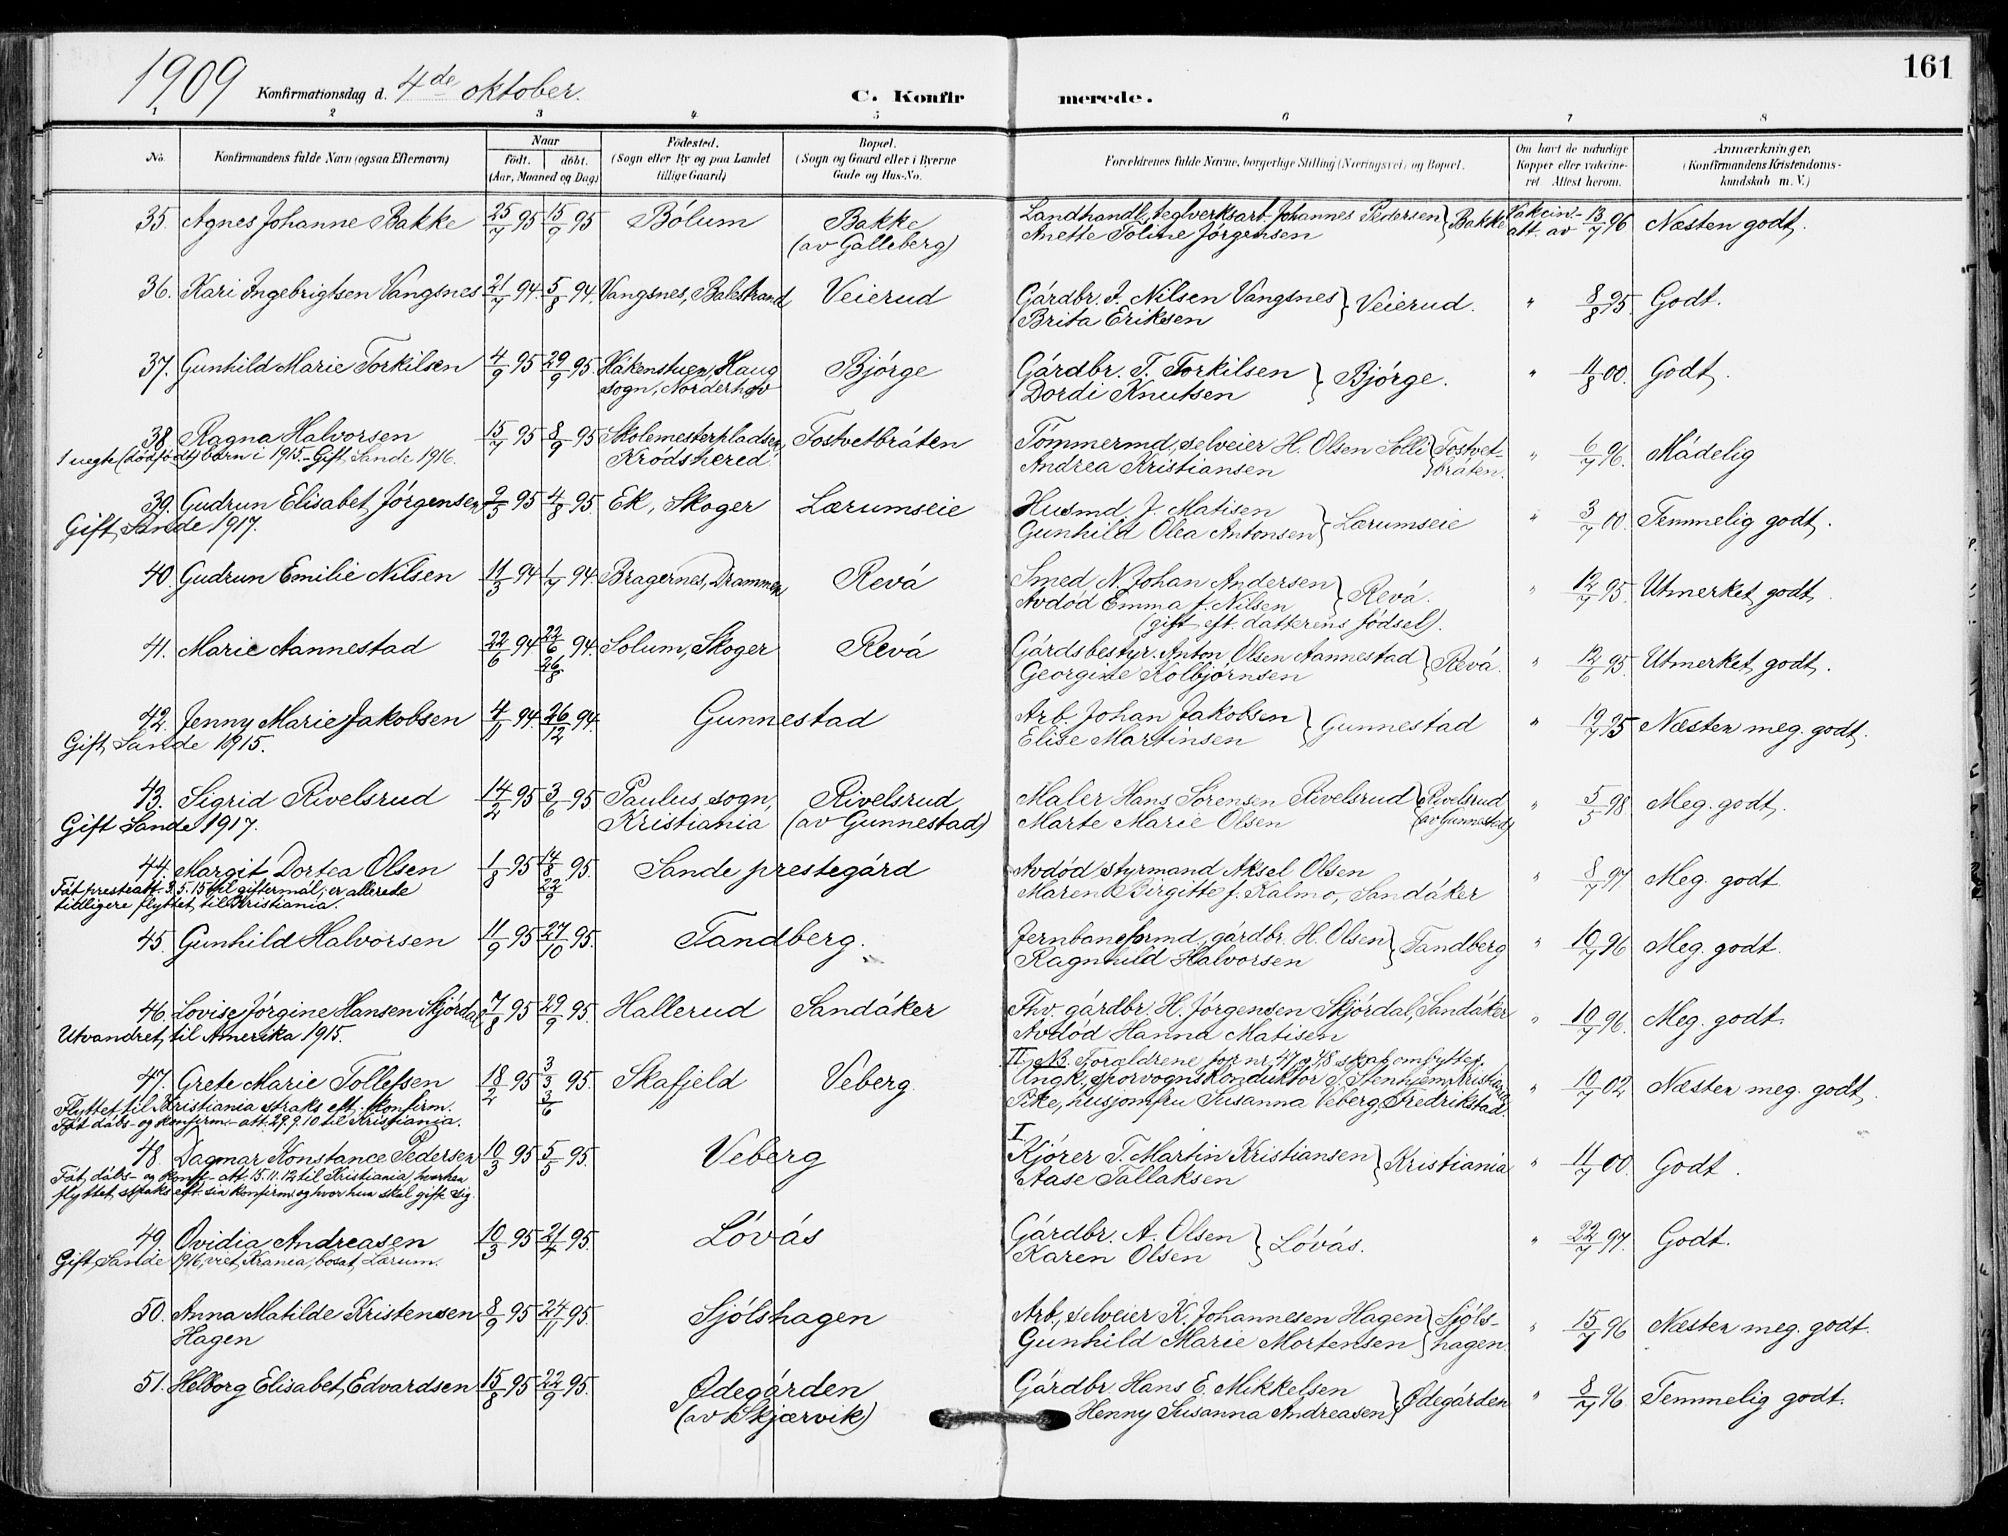 161
1909 Konfirmationsdag d. 4de oktober. C. Konfirmerede.
1 2 3 4 5 6 7 8
No. Konfirmandens fulde Navn (ogsaa Efternavn) Naar født. døbt. (Aar, Maaned og Dag) Fødested. (Sogn eller By og paa Landet tillige Gaard) Bopæl. (Sogn og Gaard eller i Byerne Gade og Hus-No. Forældrenes fulde Navne, borgerlige Stilling (Næringsvei) og Bopæl. Om havt de naturlige Kopper eller vakcineret. Attest herom. Anmærkninger, (Konfirmandens Kristendomskundskab m. V.)
35. Agnes Johanne Bakke 25/7 95 15/9 95 Bólum Bakke (av Galleberg) Landhandl., teglverksarb. Johannes Pedersen Bakke Vakcin.- att. av 13/7 96 Næsten godt.
Anette Toline Jórgensen
36. Kari Ingebrigtsen Vangsnes 21/7 94 5/8 94. Vangsnes, Balestrand Veierud Gárdbr. I. Nilsen Vangsnes Veierud. " 8/8 95 Godt.
Brita Eriksen
37. Gunhild Marie Torkilsen 4/9 95 29/9 95 Hákenstuen, Haug sogn, Norderhov Bjórge Gárdbr. T. Torkilsen Bjórge. " 11/8 00. Godt.
Dordi Knutsen
38. Ragna Halvorsen 15/7 95 8/9 95 Skolemesterpladsen, Kródshered Tostvetbráten Tómmermd, selveier H. Olsen Solli Tostvet-bráten. " 6/7 96. Mádelig
1 uegte (dódfódt) barn i 1915. - Gift Sande 1916. Andrea Kristiansen
39. Gudrun Elisabet Jórgensen 2/5 95 4/8 95. Ek, Skoger Lærumseie Husmd J. Matisen Lærumseie " 3/7 00. Temmelig godt.
Gift Sande 1917. Gunhild Olea Antonsen
40. Gudrun Emilie Nilsen 11/3 94 1/7 94 Bragernes, Drammen Revá Smed N. Johan Andersen Revá. " 12/7 95. Utmerket godt.
Avdód Emma f. Nilsen
(gift eft. datterens fódsel).
41. Marie Aannestad 22/6 94 22/6 94. 26/8 Solum, Skoger Revá Gárdsbestyr. Anton Olsen Aannestad Revá. " 12/6 95. Utmerket godt.
Georgine Kolbjórnsen
42. Jenny Marie Jakobsen 4/11 94. 26/12 94. Gunnestad Arb. Johan Jakobsen Gunnestad " 19/7 95 Næsten meg. godt.
Gift Sande 1915. Elise Martinsen
43. Sigrid Rivelsrud 14/2 95 3/6 95 Paulus sogn, Kristiania Rivelsrud (av Gunnestad) Maler Hans Sórensen Rivelsrud Rivelsrud (av Gunnestad) " 5/5 98. Meg. godt.
Gift Sande 1917. Marte Marie Olsen
44. Margit Dortea Olsen 1/8 95 14/8 95. 22/9 Sande prestegárd Avdód styrmand Aksel Olsen " 8/7 97 Meg. godt
Fát presteatt. 3.5.15 til giftermál; er allerede tidligere flyttet til Kristiania. Maren Birgitte f. Kalmo, Sandáker
45. Gunhild Halvorsen 11/9 95 27/10 95. Tandberg. Jernbaneformd, gárdbr. H. Olsen Tandberg " 10/7 96 Meg. godt.
Ragnhild Halvorsen
46. Lovise Jórgine Hansen Skjórdal 7/8 95 29/9 95. Hallerud Sandáker Fhv. gárdbr. H. Jórgensen Skjórdal, Sandáker " 10/7 96. Meg. godt.
Utvandret til Amerika 1915. Avdód Hanna Matisen
II NB. Forældrene for nr. 47 og 48 skal ombyttes.
47. Grete Marie Tollefsen 18/2 95 3/3 95. 3/6 Skafjeld Veberg. Ungk., sporvognskonduktor S. Stenhjem, Kristiania " 10/7 02 Næsten meg. godt.
Flyttet til Kristiania straks eft. konfirm. Fát dábs- og konfirm.- att. 29.9.10 til Kristiania. Pike, husjomfru Susanna Veberg, Fredrikstad.
I
48. Dagmar Konstance Pedersen 10/3 95 5/5 95. Veberg Kjórer T. Martin Kristiansen Kristiania " 11/7 00 Godt.
Fát dábs- og konf.- att. 15.11.12 til Kristiania, hvorhen flyttet straks eft. sin konfirm. og hvor hun skal gifte sig. Aase Tallaksen
49. Ovidia Andreasen 10/3 95 21/4 95. Lóvás Gárdbr. A. Olsen Lóvás. " 22/7 97. Godt.
Gift Sande 1916, viet Krania, bosat Lærum. Karen Olsen
50. Anna Matilde Kristensen Hagen 8/9 95 24/11 95. Sjólshagen Arb., selveier K. Johannesen Hagen Sjóls-hagen " 15/7 96 Næsten meg. godt.
Gunhild Marie Mortensen
51. Helborg Elisabet Edvardsen 15/8 95 22/9 95. Ødegárden (av Skjærvik) Gárdbr. Hans E. Mikkelsen Ødegárden " 8/7 96. Temmelig godt.
Henny Susanna Andreasen